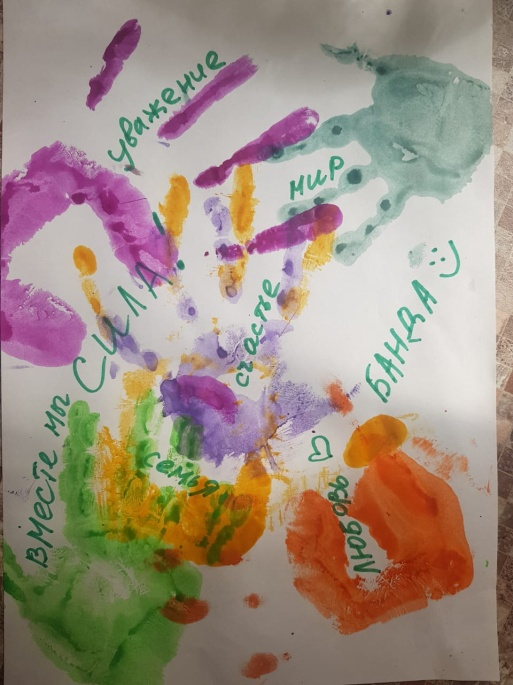 уважение
мир
вместе мы СИЛА!
счастье
БАНДА
семья
любовь